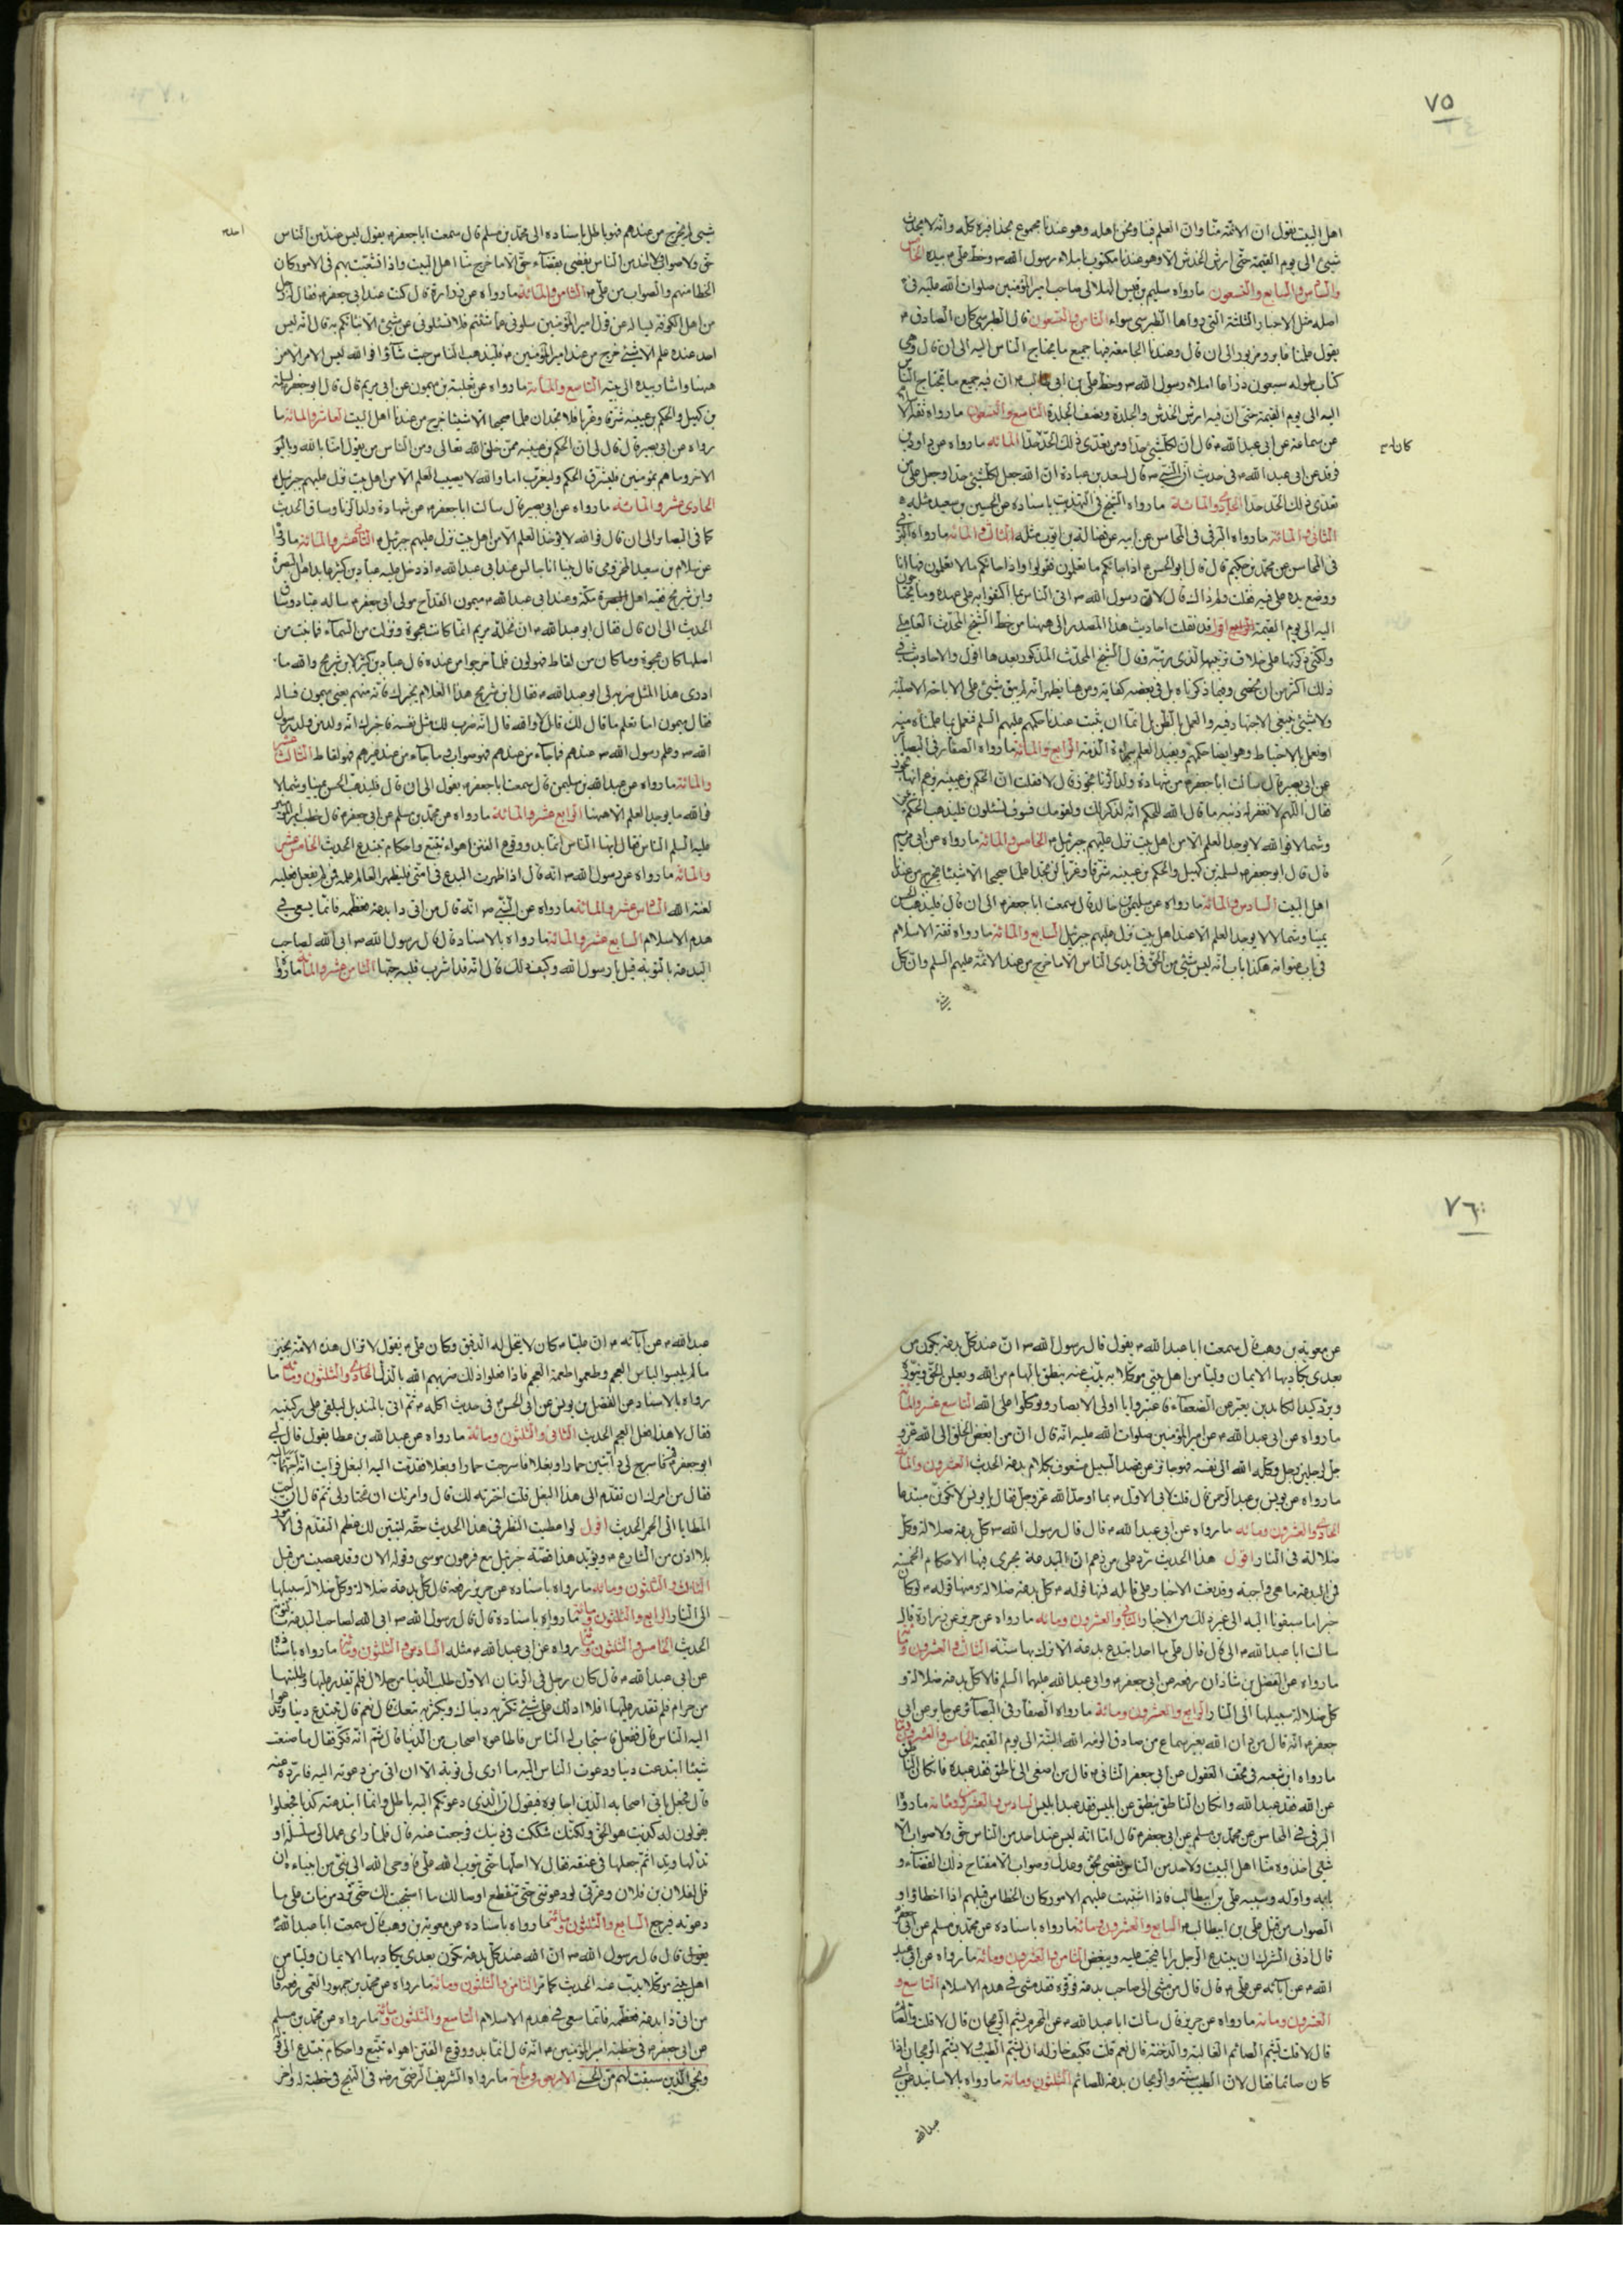 ٧٥
اهل البيت يقول ان الائمة منا وان العلم فينا ونحن اهله وهو عندنا مجموع بحذافيره كله وانه لا يحدث
شيئ الى يوم القيمة حتى ارش الخدش الا وهو عندنا مكتوب باملاء رسول الله ص وخط علي ع بيده الخامس
والسادس والسابع والتسعون ما رواه سليم بن قيس الهلالي صاحب امير المؤمنين صلوات الله عليه في
اصله مثل الاخبار الثلثة التي رواها الطبرسي سواء الثامن والتسعون قال الطبرسي كان الصادق ع
يقول علمنا غابر ومزبور الى ان قال وعندنا الجامعة فيها جميع ما يحتاج الناس اليه الى ان قال وهي
كتاب طوله سبعون ذراعا املاء رسول الله ص وخط علي بن ابي طالب ع ان فيه جميع ما يحتاج الناس
اليه الى يوم القيمة حتى ان فيه ارش الخدش والجلدة ونصف الجلدة التاسع والتسعون ما رواه
عن سماعة عن ابي عبد الله ع قال ان لكل شيئ حدا ومن تعدى ذلك الحد حدا المائة ما رواه عن داود بن
فرقد عن ابي عبد الله ع في حديث ان النبي ص قال لسعد بن عبادة ان الله جعل لكل شيئ حدا وجعل على من
تعدى ذلك الحد حدا الحادي والمائة ما رواه الشيخ في التهذيب باسناده عن الحسين بن سعيد مثله
الثاني والمائة ما رواه البرقي في المحاسن عن ابيه عن فضالة بن ايوب مثله الثالث والمائة ما رواه البرقي
في المحاسن عن محمد بن حكيم قال قال ابو الحسن ع اذا جائكم ما تعلمون فقولوا واذا جائكم ما لا تعلمون فها
ووضع يده على فيه فقلت ولم ذاك قال لان رسول الله ص اتى الناس بما اكتفوا به على عهده وما يحتاجون
اليه الى يوم القيمة اقول قد نقلت احاديث هذا المصدر الى ههنا من خط الشيخ المحدث العاملي
ولكني ذكرتها على خلاف ترتيبها الذي رتبه وقال الشيخ المحدث المذكور بعدها اقول والاحاديث في
ذلك اكثر من ان تحصى وفيما ذكرناه بل في بعضه كفاية ومن هنا يظهر انه لم يبق شيئ على الاباحة الاصلية
ولا شيئ ينبغي الاجتهاد فيه والعمل بالظن بل انما ان يثبت عندنا حكمهم عليهم السلم فنعمل بما علمناه منه
او نعمل بالاحتياط وهو ايضا حكمهم ويفيد العلم ببراءة الذمة الرابع والمائة ما رواه الصفار في البصائر
عن ابي بصير قال سالت ابا جعفر ع عن شهادة ولد الزنا تجوز قال لا فقلت ان الحكم بن عيينه يزعم انها تجوز
فقال اللهم لا تغفر له ذنبه ما قال الله للحكم انه لذكر لك ولقومك فسوف تسئلون فليذهب الحكم يمينا
وشمالا فوالله لا يوجد العلم الا من اهل بيت نزل عليهم جبرئيل ع الخامس والمائة ما رواه عن ابي مريم
قال قال ابو جعفر ع لسلمة بن كهيل والحكم بن عيينه شرقا وغربا لن تجدا علما صحيحا الا شيئا يخرج من عندنا
اهل البيت السادس والمائة ما رواه عن سليمان بن خالد قال سمعت ابا جعفر ع الى ان قال فليذهب الحسن
يمينا وشمالا لا يوجد العلم الا عند اهل بيت نزل عليهم جبرئيل السابع والمائة ما رواه ثقة الاسلام
في باب عنوانه هكذا باب انه ليس شيئ من الحق في ايدى الناس الا ما خرج من عند الائمة عليهم السلم وان كل
شيئ لم يخرج من عندهم فهو باطل باسناده الى محمد بن مسلم قال سمعت ابا جعفر ع يقول ليس عند من الناس
حق ولا صواب ولا احد من الناس يقضي بقضاء حق الا ما خرج منا اهل البيت واذا تشعبت بهم في الامور كان
الخطا منهم والصواب من علي ع الثامن والمائة ما رواه عن زرارة قال كنت عند ابي جعفر ع فقال له رجل
من اهل الكوفة يساله عن قول امير المؤمنين سلوني عما شئتم فلا تسئلوني عن شيئ الا انبأتكم به قال انه ليس
احد عنده علم الا شيئ خرج من عند امير المؤمنين ع فليذهب الناس حيث شاؤا فوالله ليس الامر الا من
ههنا واشار بيده الى بيته التاسع والمائة ما رواه عن ثعلبة بن ميمون عن ابي مريم قال قال ابو جعفر لسلمة
بن كهيل والحكم بن عيينه شرقا وغربا فلا تجدان علما صحيحا الا شيئا خرج من عندنا اهل البيت العاشر والمائة ما
رواه عن ابي بصير قال قال لى ان الحكم بن عيينه ممن خلق الله تعالى ومن الناس من يقول امنا بالله وباليوم
الاخر وما هم بمؤمنين فليشرق الحكم وليغرب اما والله لا يصيب العلم الا من اهل بيت نزل عليهم جبرئيل
الحادي عشر والمائة ما رواه عن ابي بصير قال سالت ابا جعفر ع عن شهادة ولد الزنا وساق الحديث
كما في البصائر الى ان قال فوالله لا يؤخذ العلم الا من اهل بيت نزل عليهم جبرئيل ع الثاني عشر والمائة ما رواه
عن سلام بن سعيد المخزومي قال بينا انا جالس عند ابي عبد الله ع اذ دخل عليه عباد بن كثير عابد اهل البصرة
وابن شريح فقيه اهل مكة وعند ابي عبد الله ع ميمون القداح مولى ابي جعفر ع ساله عباد وساق
الحديث الى ان قال فقال ابو عبد الله ع ان نخلة مريم انما كانت عجوة ونزلت من السماء فما نبت من
اصلها كان عجوة وما كان من لقاط فهو لون فلما خرجوا من عنده قال عباد بن كثير لابن شريح والله ما
ادري هذا المثل ضربه لى ابو عبد الله ع فقال ابن شريح هذا الغلام يخبرك فانه منهم يعني ميمون فساله
فقال ميمون اما تعلم ما قال لك قال لا والله قال انه ضرب لك مثل نفسه فاخبرك انه ولد من ولد رسول
الله ص وعلم رسول الله ص عندهم فما جاء من عندهم فهو صواب وما جاء من عند غيرهم فهو لقاط الثالث عشر
والمائة ما رواه عن عبد الله بن سليمن قال سمعت ابا جعفر ع يقول الى ان قال فليذهب الحسن يمينا وشمالا
فوالله ما يوجد العلم الا ههنا الرابع عشر والمائة ما رواه عن محمد بن مسلم عن ابي جعفر ع قال خطب امير المؤمنين
عليه السلم الناس فقال ايها الناس انما بدو وقوع الفتن اهواء تتبع واحكام تبتدع الحديث الخامس عشر
والمائة ما رواه عن رسول الله ص انه قال اذا ظهرت البدع في امتي فليظهر العالم علمه فمن لم يفعل فعليه
لعنة الله السادس عشر والمائة ما رواه عن النبي ص انه قال من اتى ذا بدعة فعظمه فانما يسعى في
هدم الاسلام السابع عشر والمائة ما رواه بالاسناد قال قال رسول الله ص ابى الله لصاحب
البدعة بالتوبة قيل يا رسول الله وكيف ذلك قال انه قد اشرب قلبه حبها الثامن عشر والمائة ما رواه
٧٦
عن معوية بن وهب قال سمعت ابا عبد الله ع يقول قال رسول الله ص ان عند كل بدعة تكون من
بعدي يكاد بها الايمان وليا من اهل بيتي موكلا به يذب عنه ينطق بالهام من الله ويعلن الحق وينوره
ويرد كيد الكايدين يعبر عن الضعفاء فاعتبروا يا اولي الابصار وتوكلوا على الله التاسع عشر والمائة
ما رواه عن ابي عبد الله ع عن امير المؤمنين صلوات الله عليه انه قال ان من ابغض الخلق الى الله عز و
جل لرجلين رجل وكله الله الى نفسه فهو جائر عن قصد السبيل مشعوف بكلام بدعة الحديث العشرون والمائة
ما رواه عن يونس بن عبد الرحمن قال قلت لابي الاول ع بما اوحد الله عز وجل فقال يا يونس لا تكونن مبتدعا
الحادي والعشرون ومائة ما رواه عن ابي عبد الله ع قال قال رسول الله ص كل بدعة ضلالة وكل
ضلالة في النار اقول هذا الحديث يرد على من زعم ان البدعة يجرى فيها الاحكام الخمسة
فمن البدعة ما هي واجبة
سالت ابا عبد الله ع الى ان قال قال علي ع ما احد ابتدع بدعة الا ترك بها سنة الثالث والعشرون ومائة
ما رواه عن الفضل بن شاذان رفعه عن ابي جعفر ع وابي عبد الله عليهما السلم قالا كل بدعة ضلالة و
كل ضلالة سبيلها الى النار الرابع والعشرون ومائة ما رواه الصفار في البصائر عن جابر عن ابي
جعفر ع انه قال من دان الله بغير سماع من صادق الزمه الله التيه الى يوم القيمة الخامس والعشرون ومائة
ما رواه ابن شعبه في تحف العقول عن ابي جعفر الثاني ع قال من اصغى الى ناطق فقد عبده فان كان الناطق
عن الله فقد عبد الله وان كان الناطق ينطق عن ابليس فقد عبد ابليس السادس والعشرون ومائة ما رواه
البرقي في المحاسن عن محمد بن مسلم عن ابي جعفر ع قال اما انه ليس عند احد من الناس حق ولا صواب الا
شيئ اخذوه منا اهل البيت ولا احد من الناس يقضي بحق وعدل وصواب الا مفتاح ذلك القضاء و
بابه واوله وسببه علي بن ابيطالب فاذا اشتبهت عليهم الامور كان الخطا من قبلهم اذا اخطاؤا و
الصواب من قبل علي بن ابيطالب ع السابع والعشرون ومائة ما رواه باسناده عن محمد بن مسلم عن ابي جعفر
قال ادنى الشرك ان يبتدع الرجل رايا فيحب عليه ويبغض الثامن والعشرون ومائة ما رواه عن ابي عبد
الله ع عن آبائه عن علي ع قال قال من مشى الى صاحب بدعة فوقره فقد مشى في هدم الاسلام التاسع و
العشرون ومائة ما رواه عن حريز قال سالت ابا عبد الله ع عن المحرم يشم الريحان قال لا قلت والصائم
قال لا قلت يشم الصائم الغالية والدخنة قال نعم قلت فكيف حل له ان يشم الطيب ولا يشم الريحان
كان صائما فقال لان الطيب سنة والريحان بدعة للصائم الثلثون ومائة ما رواه بالاسانيد عن ابي
عبد الله
عبد الله ع عن آبائه ع ان عليا ع كان لا ينخل له الدقيق وكان علي ع يقول لا تزال هذه الامة بخير
ما لم يلبسوا لباس العجم ويطعموا اطعمة العجم فاذا فعلوا ذلك ضربهم الله بالذل الحادي والثلثون ومائة ما
رواه بالاسناد عن الفضل بن يونس عن ابي الحسن ع في حديث اكله ع ثم اتى بالمنديل ليلقي على ركبتيه
فقال لا هذا فعل العجم الحديث الثاني والثلثون ومائة ما رواه عن عبد الله بن عطا يقول قال لى
ابو جعفر ع قم فاسرج لى دابتين حمارا وبغلا فاسرجت حمارا وبغلا فقدمت اليه البغل فرايت انه احبهما اليه
فقال من امرك ان تقدم الى هذا البغل قلت اخترته لك قال وامرتك ان تختار لى ثم قال ان احب
المطايا الى الحمر الحديث اقول لو اعطيت النظر في هذا الحديث حقه لتبين لك عظم التقدم في الامور
بلا اذن من الشارع ع ويؤيد هذا قصة جبرئيل مع فرعون موسى وقوله الان وقد عصيت من قبل
الثالث والثلثون ومائة ما رواه باسناده عن حريز رفعه قال كل بدعة ضلالة وكل ضلالة سبيلها
الى النار الرابع والثلثون ومائة ما رواه باسناده قال قال رسول الله ص ابى الله لصاحب البدعة بتوبة
الحديث الخامس والثلثون ومائة رواه عن ابي عبد الله ع مثله السادس والثلثون ومائة ما رواه باسناده
عن ابي عبد الله ع قال كان رجل في الزمان الاول طلب الدنيا من حلال فلم يقدر عليها وطلبها
من حرام فلم تقدر عليها افلا ادلك على شيئ تكثر به دنياك ويكثر به تبعك قال نعم قال تبتدع دينا وتدعوا
اليه الناس قال ففعل فاستجاب له الناس فاطاعوه اصحاب من الدنيا قال ثم انه فكر فقال ما صنعت
شيئا ابتدعت دينا ودعوت الناس اليه ما ارى لى توبة الا ان اتي من دعوته اليه فارده عنه
قال فجعل ياتي اصحابه الذين اجابوه فيقول ان الذي دعوتكم اليه باطل وانما ابتدعته كذبا فجعلوا
يقولون له كذبت هو الحق ولكنك شككت في دينك فرجعت عنه قال فلما راى عمد الى سلسلة او
تد لها وتدا ثم جعلها في عنقه فقال لا احلها حتى يتوب الله علي فاوحى الله الى نبي من انبيائه ان
قل لفلان بن فلان وعزتي لو دعوتني حتى تنقطع اوصالك ما استجبت لك حتى ترد من مات على ما
دعوته فيرجع السابع والثلثون ومائة ما رواه باسناده عن معوية بن وهب قال سمعت ابا عبد الله ع
يقول قال قال رسول الله ص ان الله عند كل بدعة تكون بعدي يكاد بها الايمان وليا من
اهل بيتي موكلا يذب عنه الحديث كما مر الثامن والثلثون ومائة ما رواه عن محمد بن جمهور القمي رفعه قال
من اتى ذا بدعة فعظمه فانما سعى في هدم الاسلام التاسع والثلثون ومائة ما رواه عن محمد بن مسلم
عن ابي جعفر ع في خطبة امير المؤمنين ع انه قال انما بدو وقوع الفتن اهواء تتبع واحكام تبتدع الى قوله
ونجى الذين سبقت لهم من الحسنى الاربعون ومائة ما رواه الشريف الرضي رضه في النهج في خطبة له